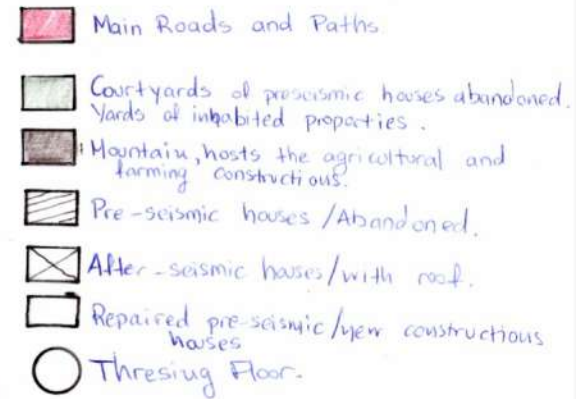 Main Roads and Paths
Courtyards of preseismic houses abandoned.
Yards of inhabited properties.
: Mountain, hosts the agricultural and
farming constructions.
Pre-seismic houses/Abandoned.
After-seismic houses/with roof.
Repaired pre-seismic/new constructions
houses
Thresing Floor.